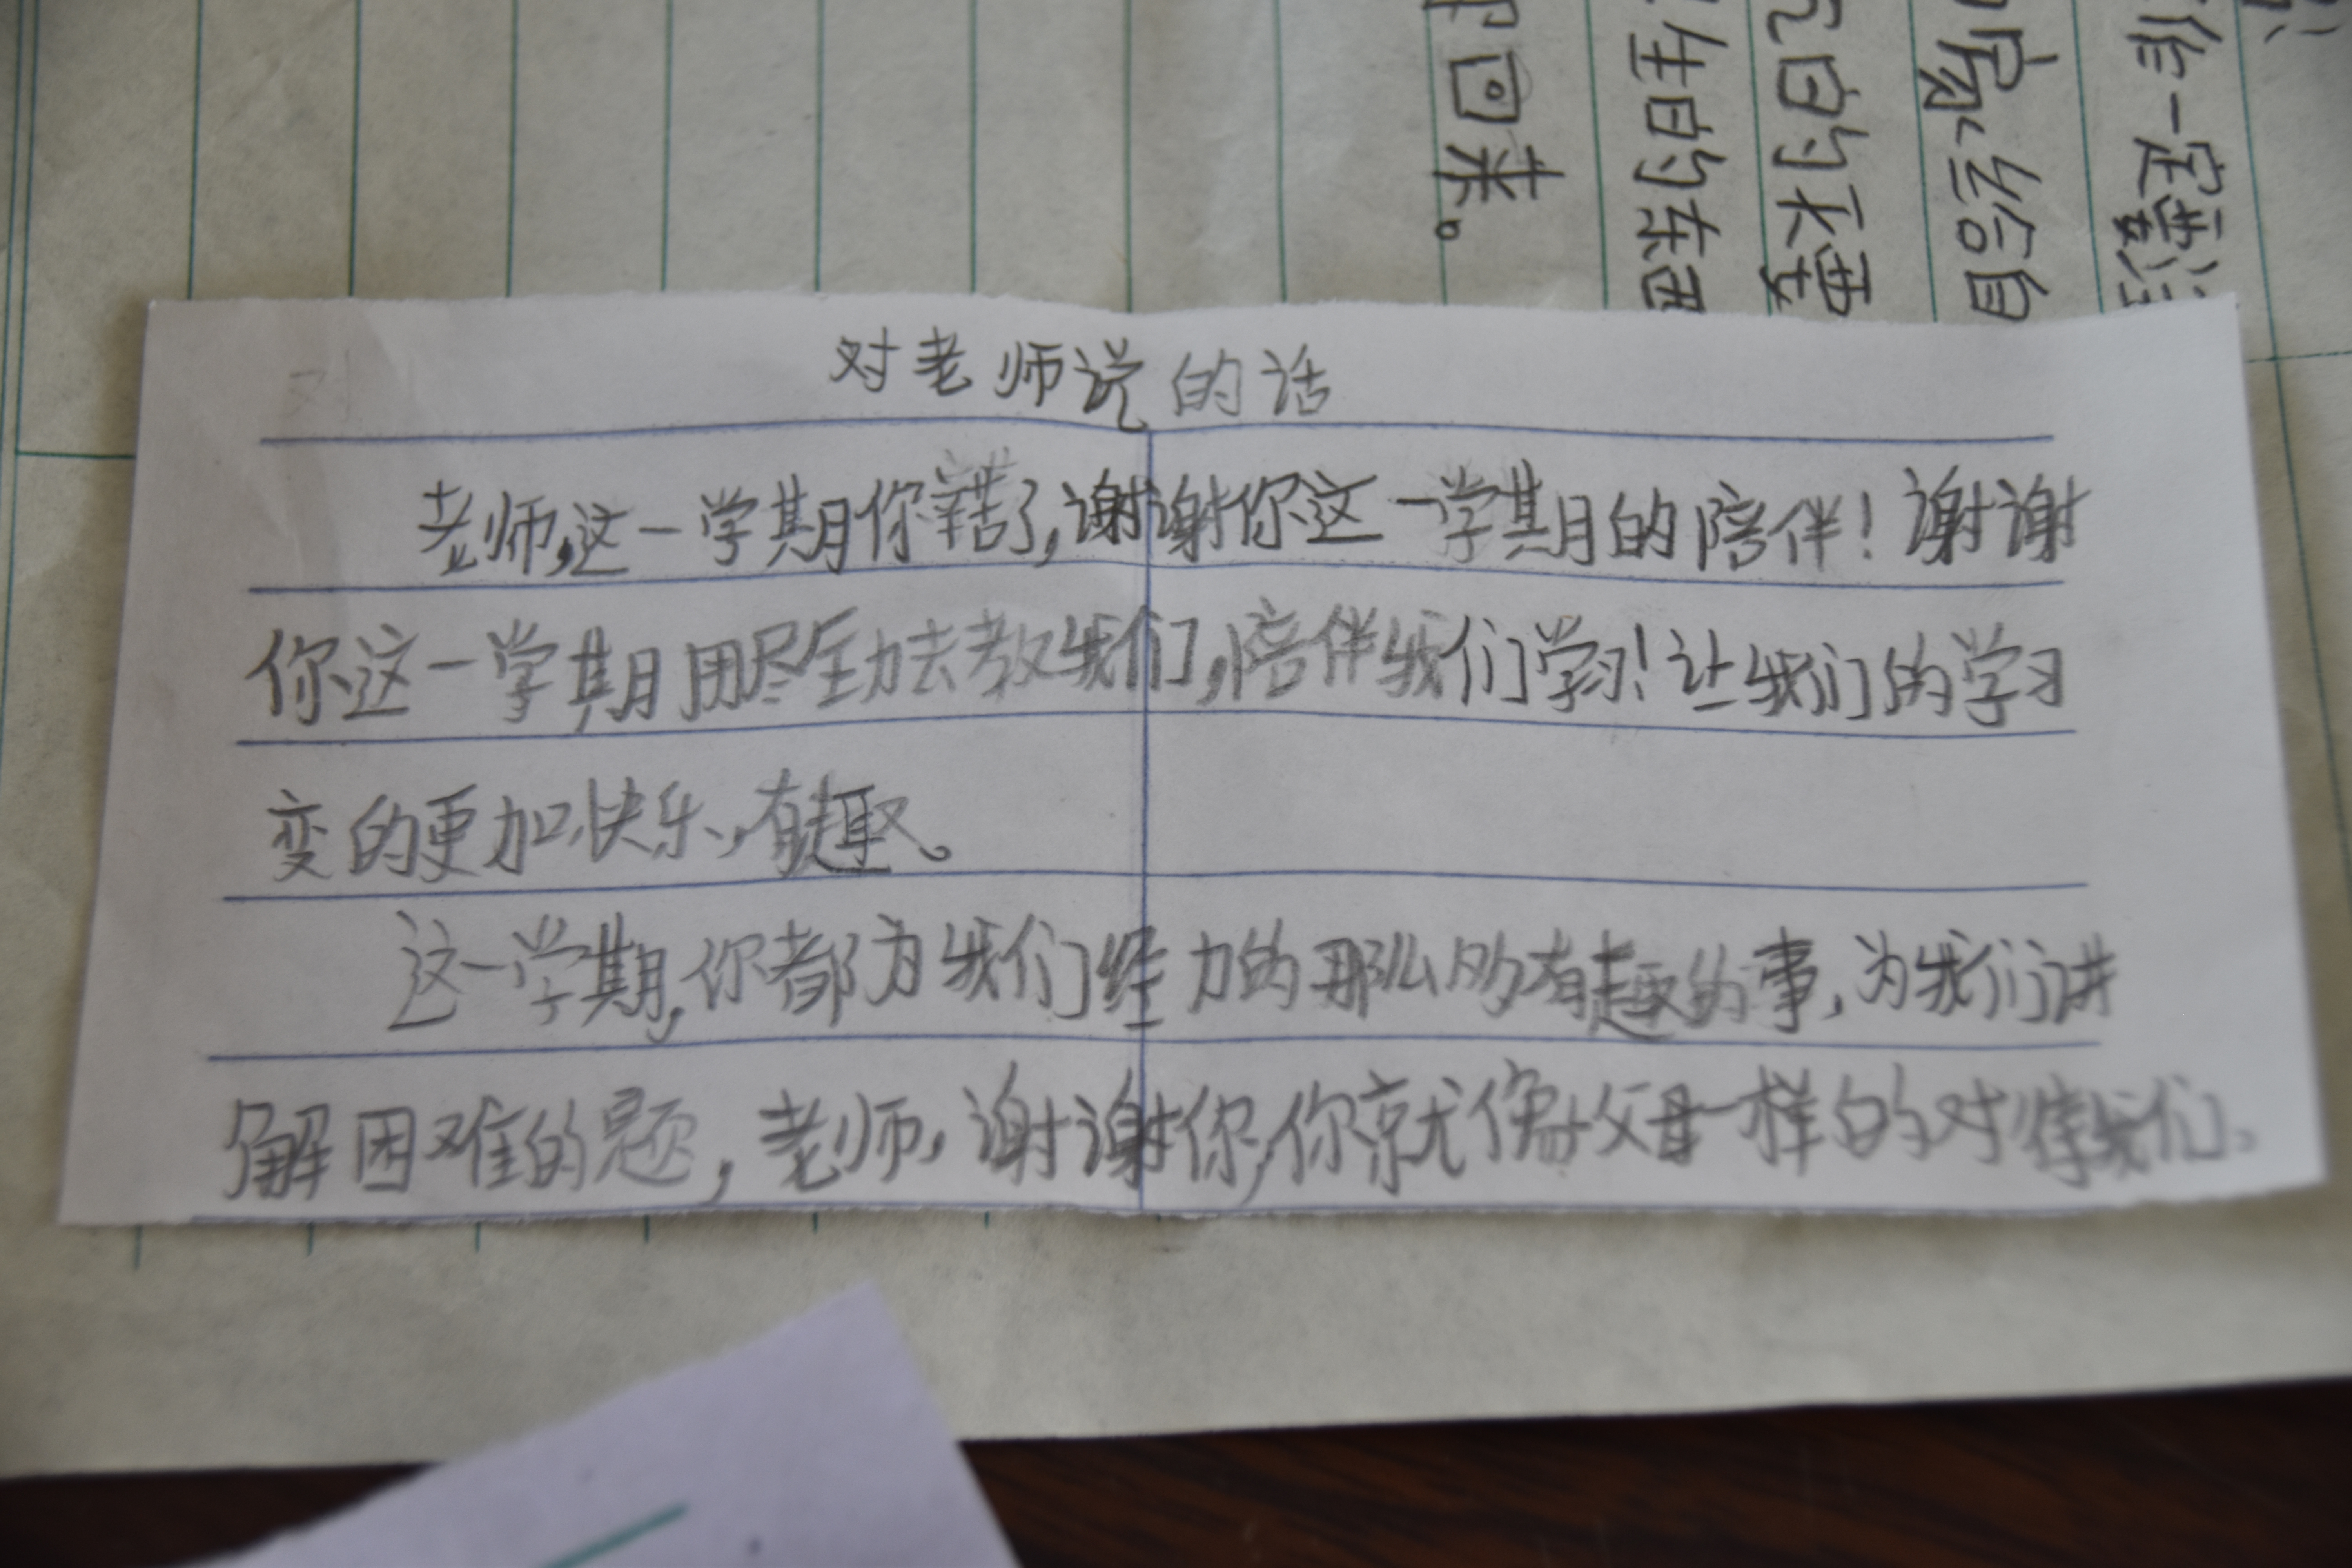 对老师说的话
老师,这一学期你辛苦了,谢谢你这一学期的陪伴!谢谢
你这一学期用尽全力去教我们,陪伴我们学习!让我们的学习
变的更加快乐,有趣。
这一学期,你都为我们经力的那么多有趣的事,为我们讲
解困难的题,老师,谢谢你,你就像父母一样的对待我们。
作一定要注
家给自
白的不要
生日的东西
回来。